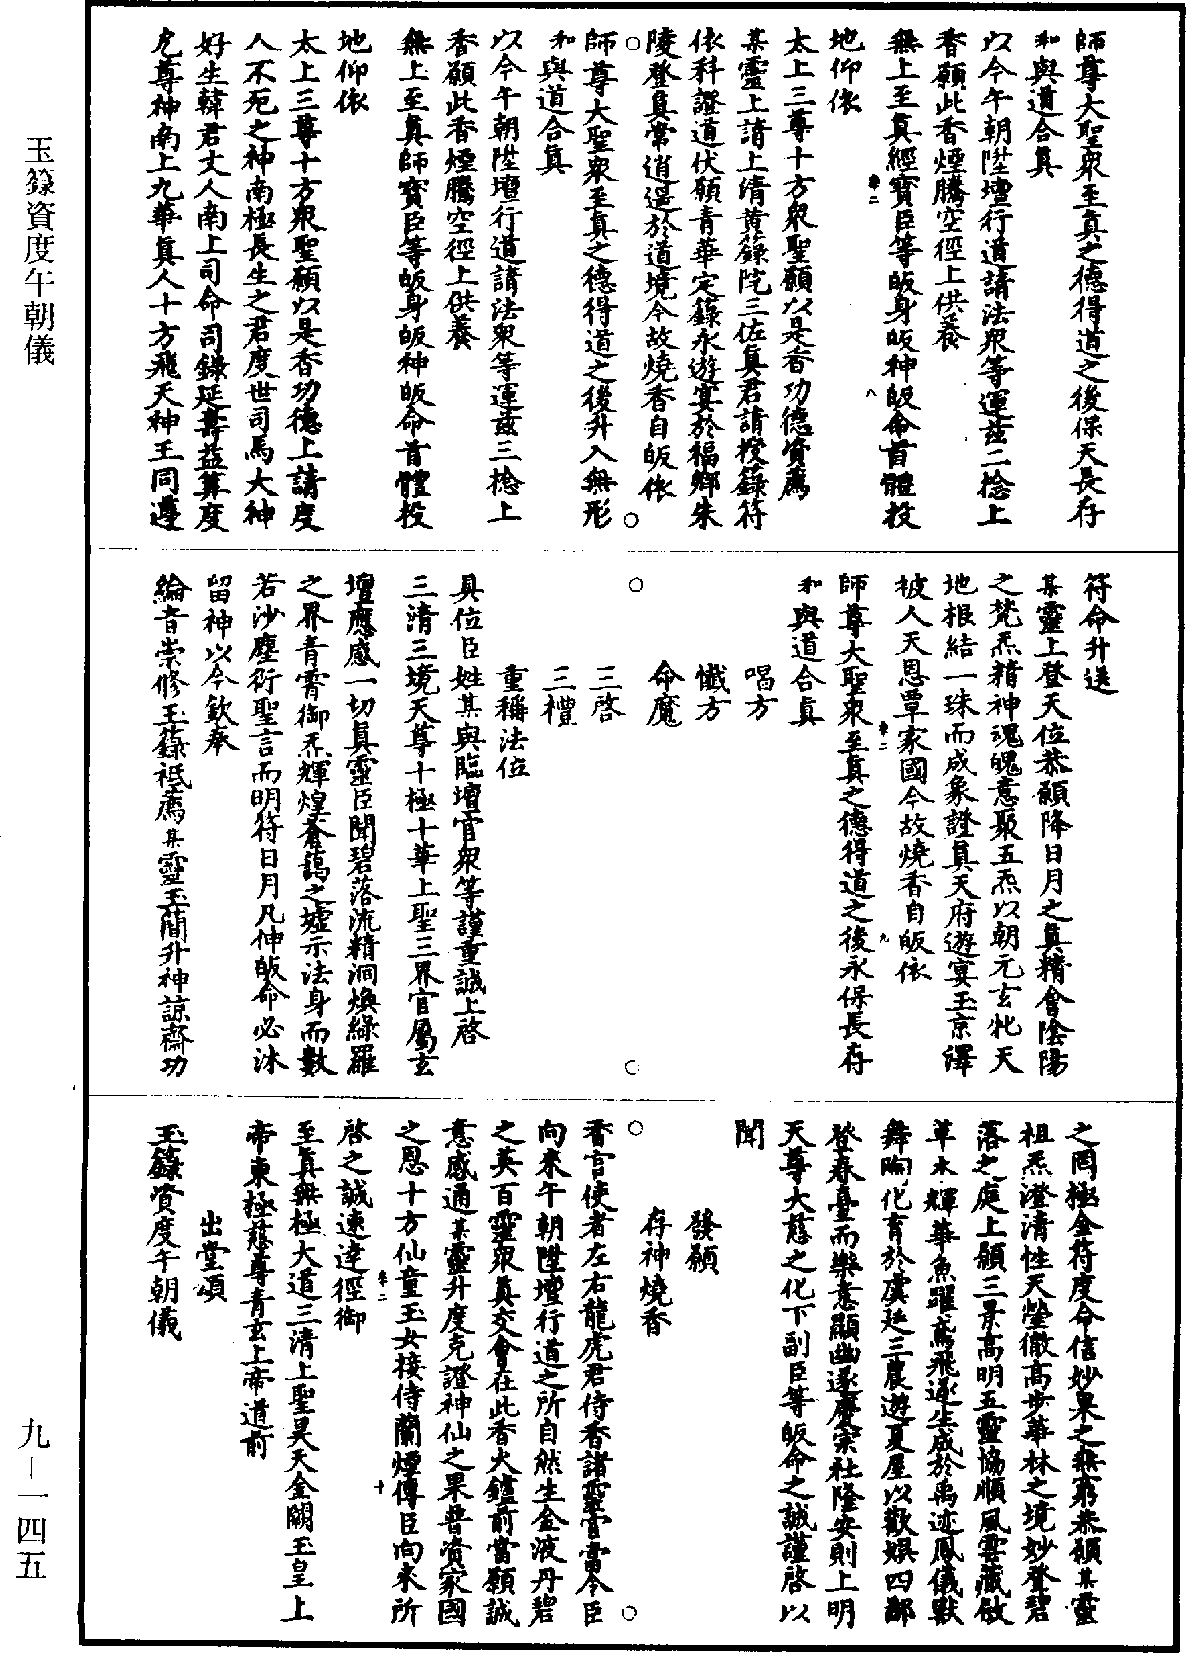 師尊大聖衆至真之德得道之後保天長存
和與道合真
以今午朝陞壇行道請法衆等運茲二捻上
香願此香煙騰空徑上供養
無上至真經寶臣等皈身皈神皈命首體投
地仰依
太上三尊十方衆聖願以是香功德資薦
某靈上請上清黃籙院三佐真君請授籙符
依科證道伏願青華定籙永遊宴於福鄉朱
陵登真常逍遥於道境今故燒香自皈依
師尊大聖衆至真之德得道之後升入無形
和與道合真
以今午朝陞壇行道請法衆等運茲三捻上
香願此香煙騰空徑上供養
無上至真師寶臣等皈身皈神皈命首體投
地仰依
太上三尊十方衆聖願以是香功德上請度
人不死之神南極長生之君度世司馬大神
好生韓君丈人南上司命司錄延壽益筭度
厄尊神南上九華真人十方飛天神王同遵
符命升遷
某靈上登天位恭願降日月之真精會陰陽
之梵炁精神魂魄意聚五炁以朝元玄牝天
地根結一珠而成象證真天府遊宴玉京澤
被人天恩覃家國今故燒香自皈依
師尊大聖衆至真之德得道之後永保長存
和與道合真
唱方
懺方
命魔
三啓
三禮
重稱法位
具位臣姓某與臨壇官衆等謹重誠上啓
三清三境天尊十極十華上聖三界官屬玄
壇應感一切真靈臣聞碧落流精洞煥綠羅
之界青霄御炁輝煌蒼藹之墟示法身而數
若沙塵衍聖言而明符日月凡伸皈命必沐
留神以今欽奉
綸音崇修玉籙祗薦某靈玉簡升神諒齋功
之罔極金符度命信妙果之無窮恭願某靈
祖炁澄清性天瑩徹高步華林之境妙登碧
落之庭上願三景高明五靈協順風雲藏攸
草木輝華魚躍鳶飛遂生成於禹迹鳳儀獸
舞陶化育於虞廷三農遊夏屋以歡娛四鄙
登春臺而樂意顯幽遂慶宗社隆安則上明
天尊大慈之化下副臣等皈命之誠謹啓以
聞
發願
存神燒香
香官使者左右龍虎君侍香諸靈官當令臣
向來午朝陞壇行道之所自然生金液丹碧
之英百靈衆真交會在此香火鑪前當願誠
意感通某靈升度克證神仙之果普資家國
之恩十方仙童玉女接侍蘭煙傳臣向來所
啓之誠速達徑御
至真無極大道三清上聖昊天金闕玉皇上
帝東極慈尊青玄上帝道前
出堂頌
玉籙資度午朝儀
玉籙資度午朝儀
九—一四五